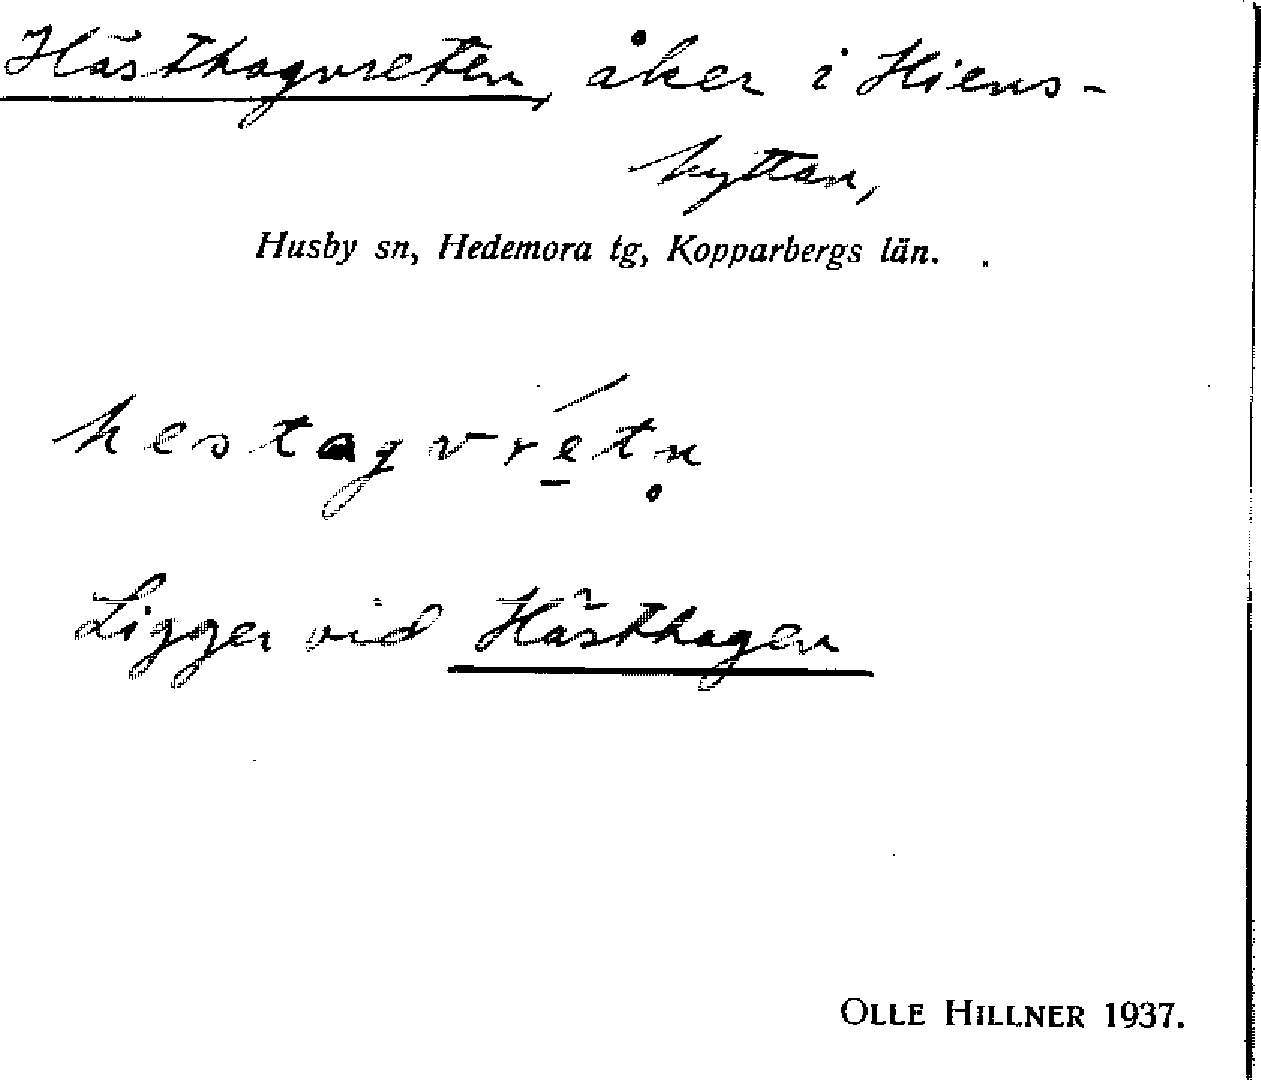 Hästhagvreten, åker i Hiens-
hyttan,
Husby sn, Hedemora tg, Kopparbergs län.
hestagvré̲tn̥
Ligger vid Hästhagen
OLLE HILLNER 1937.